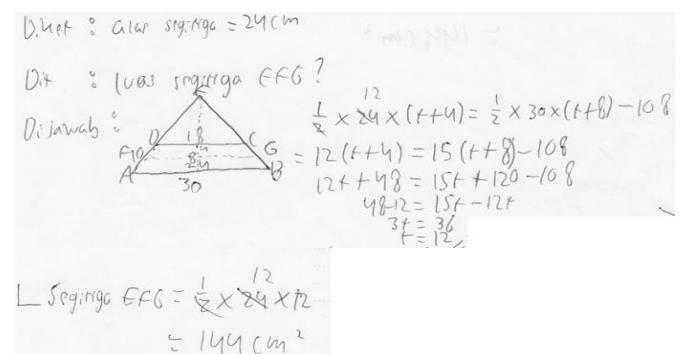 Diket : alas segitiga = 24 cm
Dit : luas segitiga EFG ?
Dijawab :
E
D 18 C
F 10 G
8 24
A B
30
1/2 × 24 12 × (t+4) = 1/2 × 30 × (t+8) - 108
= 12 (t+4) = 15 (t+8) - 108
12t + 48 = 15t + 120 - 108
48-12 = 15t - 12t
3t = 36
t = 12
L segitiga EFG = 1/2 × 24 12 × 12
= 144 cm²